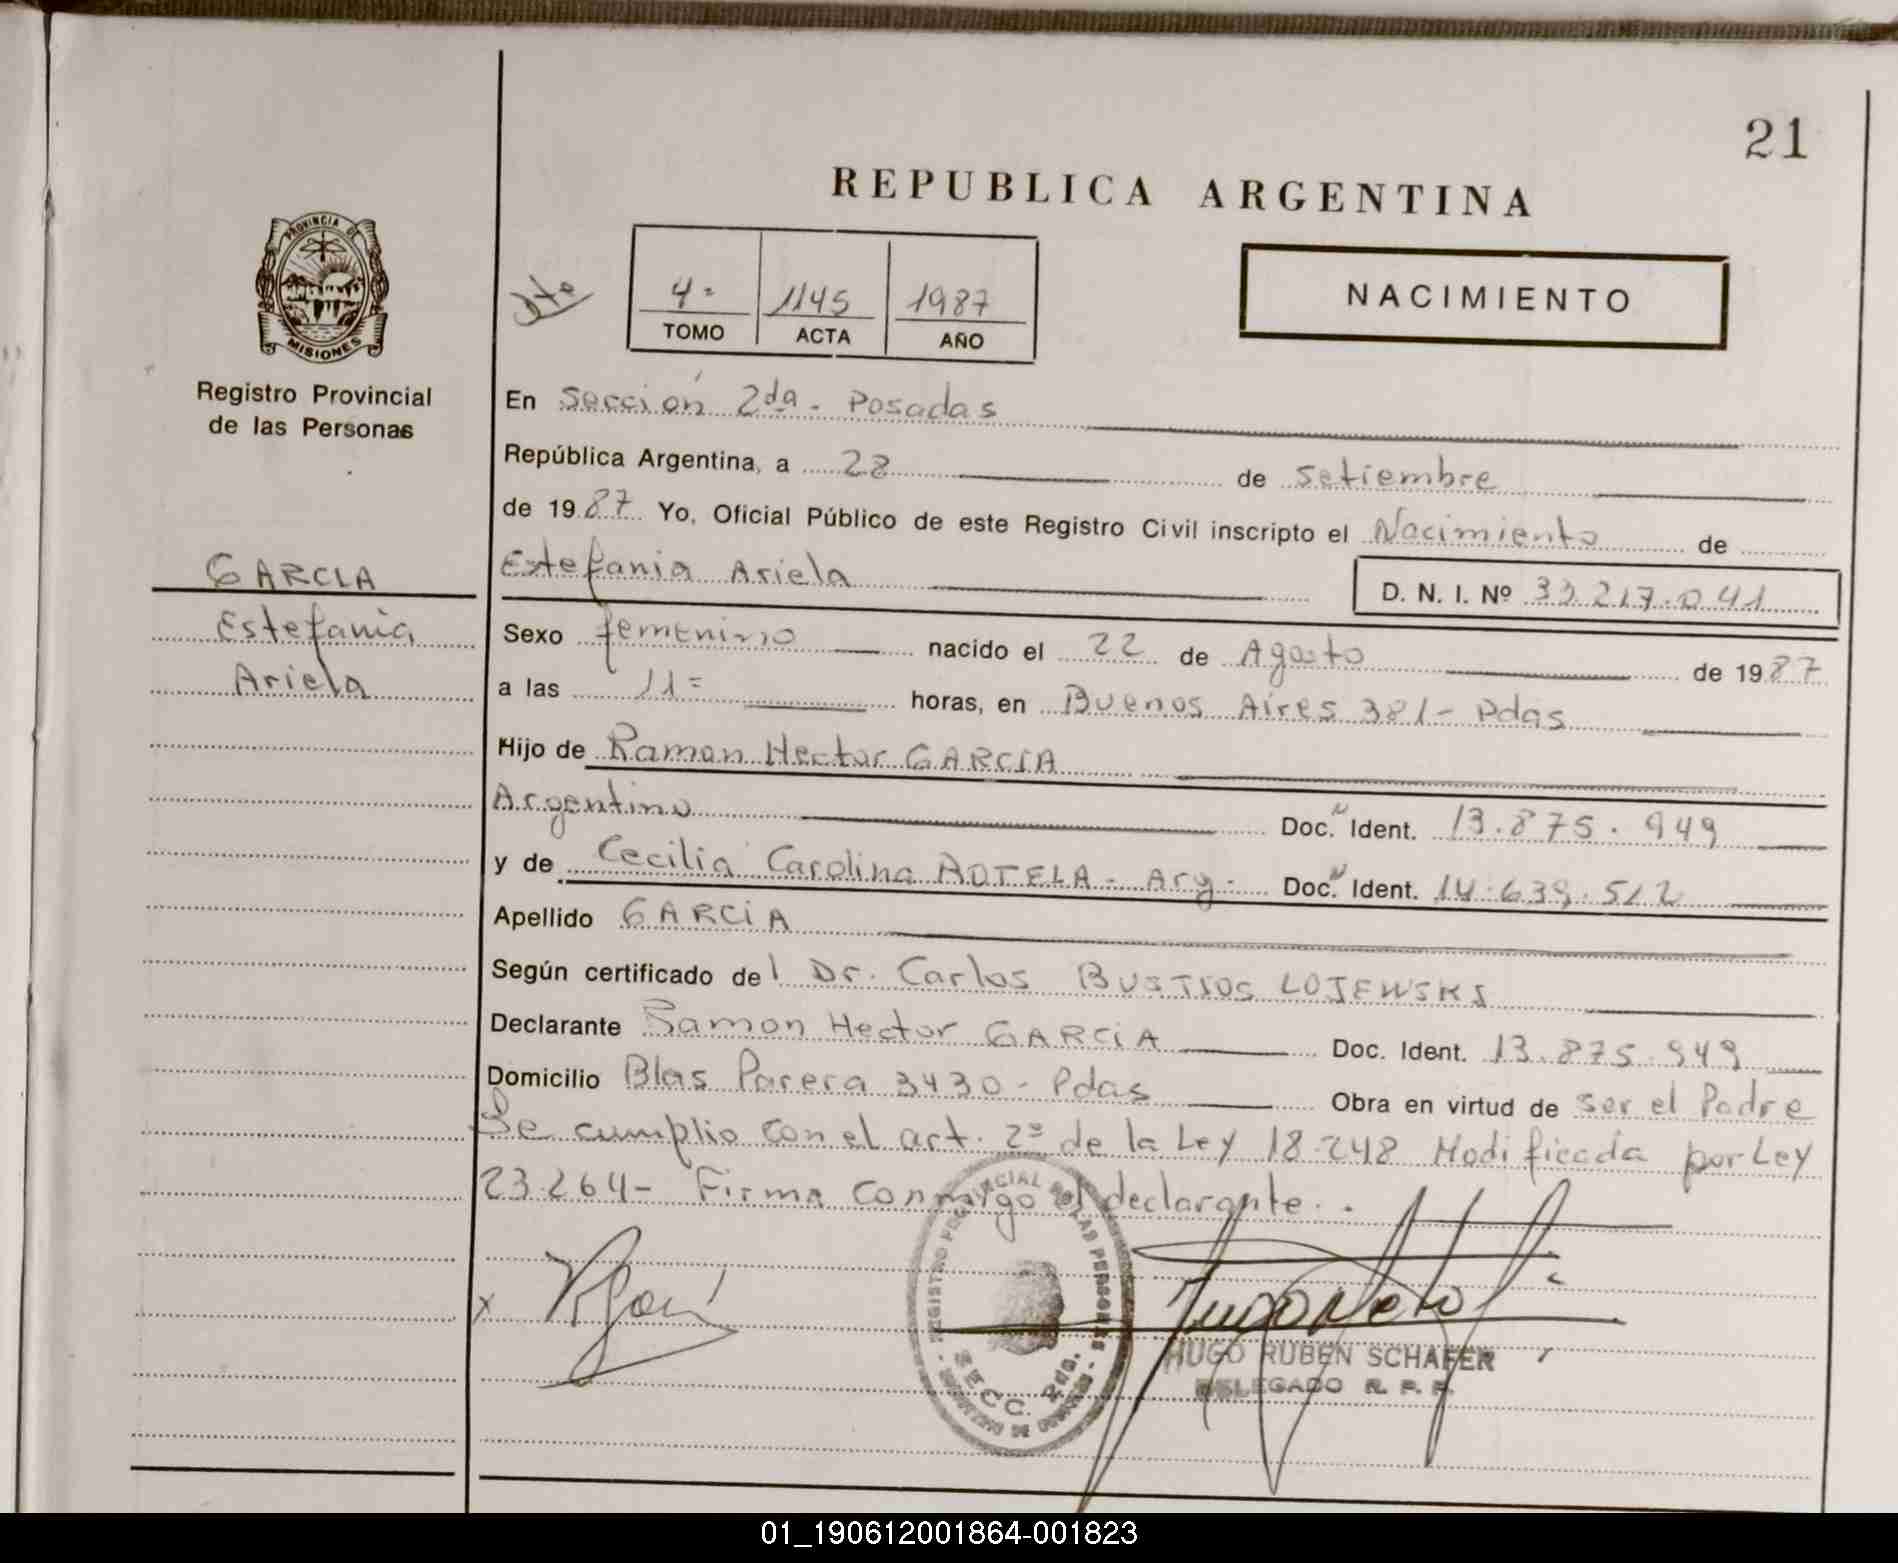 21
REPUBLICA ARGENTINA
PROVINCIA DE
MISIONES
Registro Provincial
de las Personas
4=
1145
1987
TOMO
ACTA
AÑO
NACIMIENTO
En Sección 2da. Posadas
República Argentina, a 28 de setiembre
de 1987 Yo, Oficial Público de este Registro Civil inscripto el Nacimiento de
GARCIA
Estefania Ariela
D. N. I. Nº 33.217.041
Estefania
Ariela
Sexo femenino nacido el 22 de Agosto de 1987
a las 11= horas, en Buenos Aires 381- Pdas
Hijo de Ramon Hector GARCIA
Argentino Doc. Ident. 13.875.949
y de Cecilia Carolina - Arg. Doc. Ident. 14.639.512
Apellido GARCIA
Según certificado del Dr. Carlos LOJEWSKI
Declarante Ramon Hector GARCIA Doc. Ident. 13.875.949
Domicilio Blas Parera 3430 - Pdas Obra en virtud de ser el Padre
Se cumplio con el art. 2º de la Ley 18.248 Modificada por Ley
23.264- Firma conmigo el declarante.
x
HUGO RUBEN SCHAFER
DELEGADO R. P. P.
SECC. 2da.
01_190612001864-001823